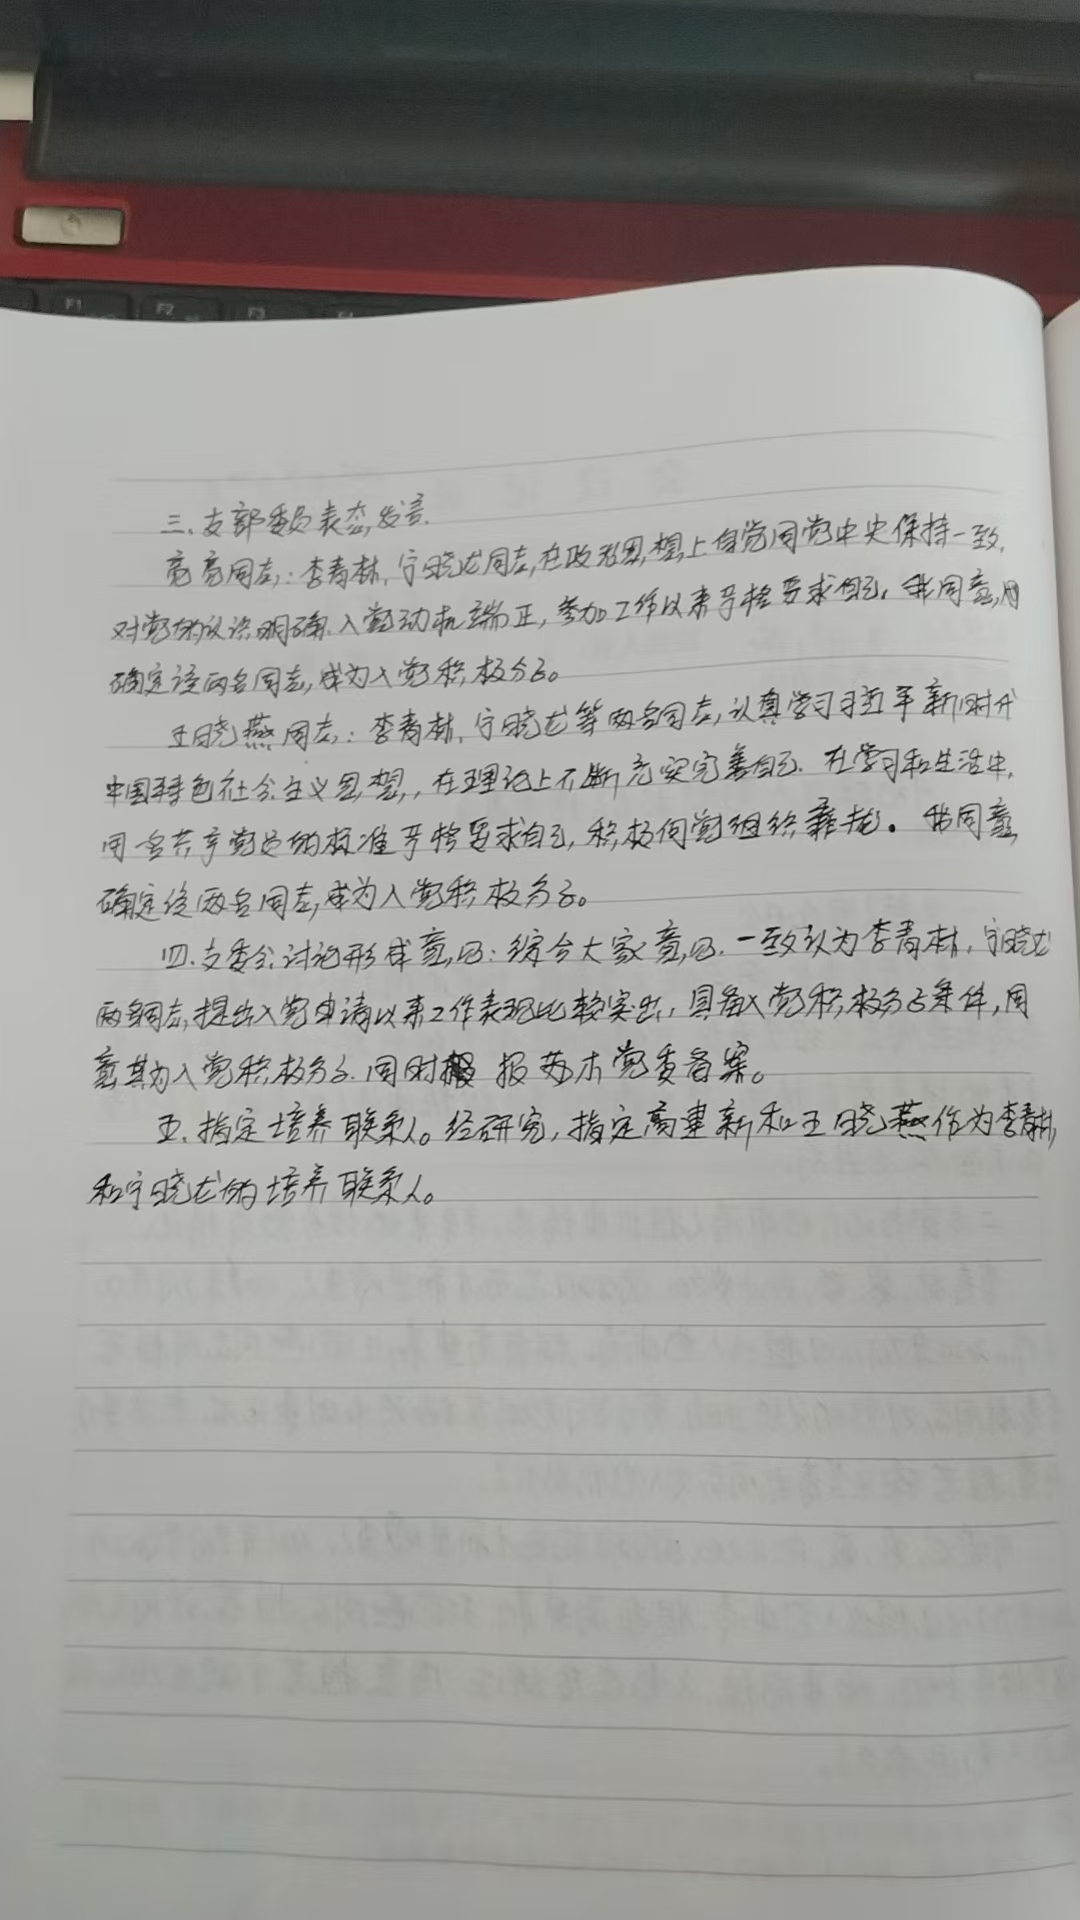 F1 F2 F3
三.支部委员表态发言.
亮亮同志:李青林、宁晓龙同志,在政治思想上自觉同党中央保持一致,
对党的认识明确.入党动机端正,参加工作以来严格要求自己,我同意
确定该两名同志,成为入党积极分子。
王晓燕同志:李青林、宁晓龙等两名同志,认真学习习近平新时代
中国特色社会主义思想,,在理论上不断充实完善自己.在学习和生活中,
同一名共产党员的标准严格要求自己,积极向党组织靠拢。我同意,
确定该两名同志,成为入党积极分子。
四.支委会讨论形成意见:综合大家意见.一致认为李青林,宁晓龙
两名同志,提出入党申请以来工作表现比较突出,具备入党积极分子条件,同
意其为入党积极分子.同时 报苏木党委备案。
五.指定培养联系人。经研究,指定高建新和王晓燕作为李青林,
和宁晓龙的培养联系人。